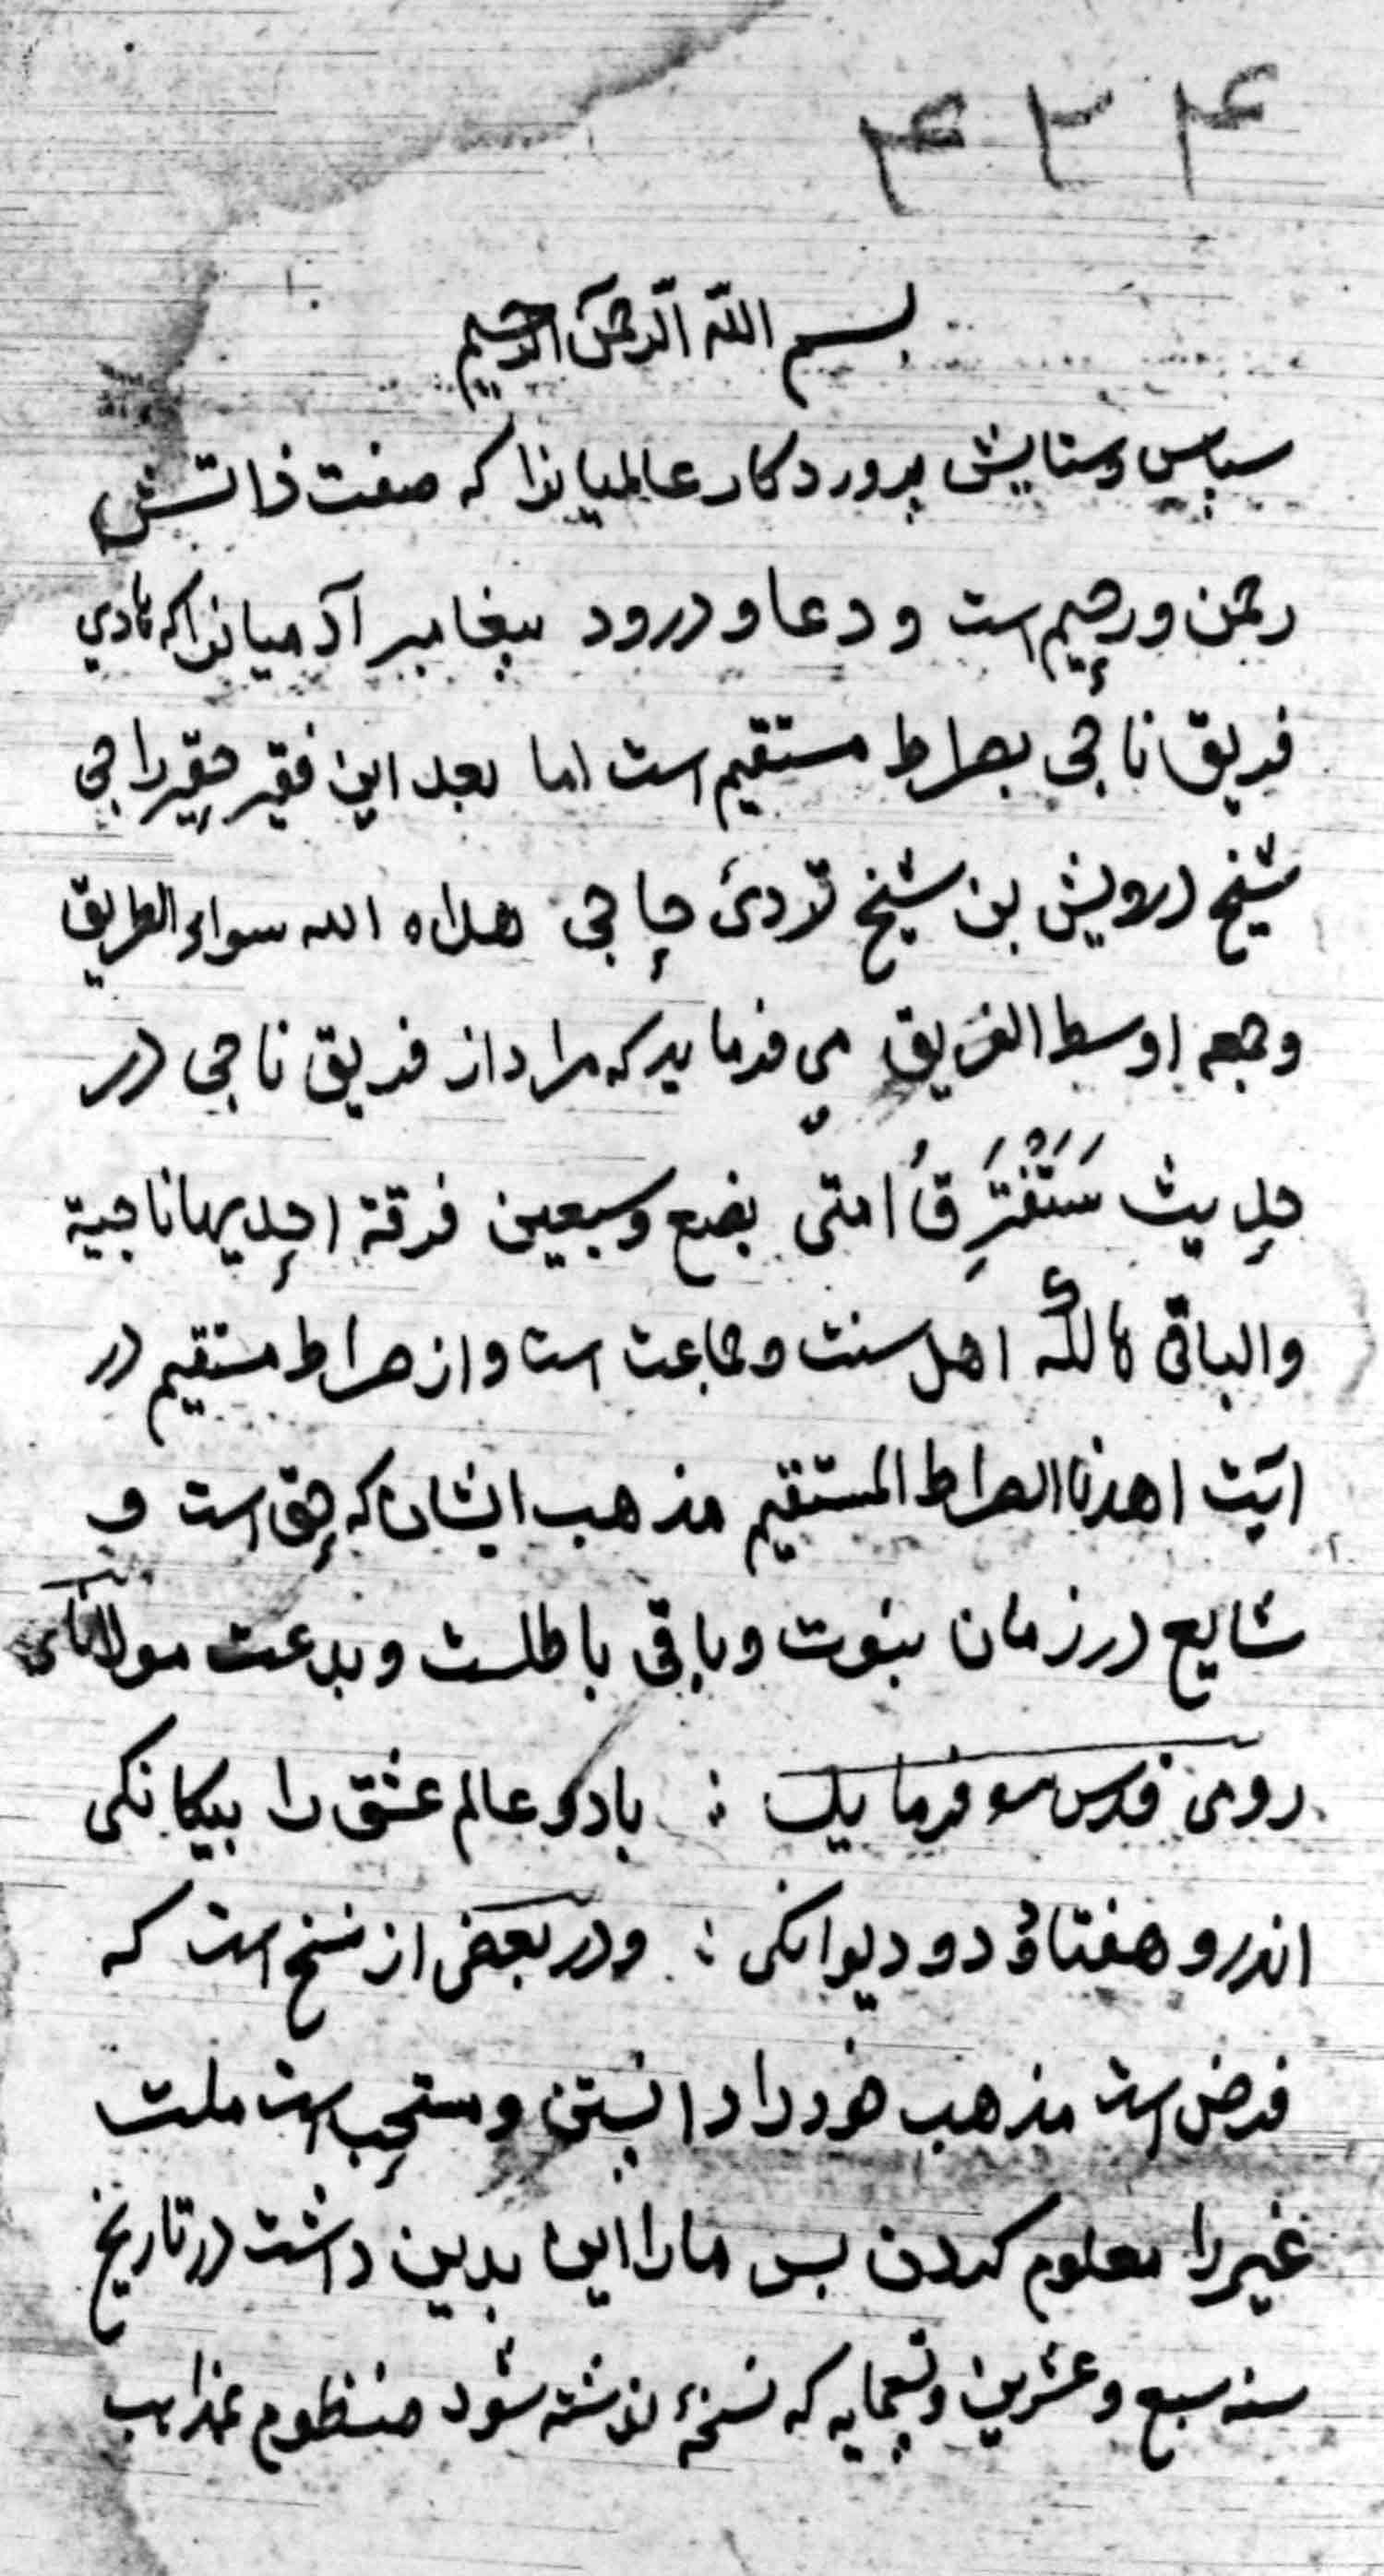 ۴۳۴
بسم الله الرحمن الرحيم
سپاس وستايش پروردكار عالميانرا كه صفت ذاتش
رحمن ورحيم است ودعا ودرود پيغامبر آدميانرا كه هادي
فريق ناجى بصراط مستقيم است اما بعد اين فقير حقير راجى
شيخ درويش بن شيخ حاجى هداه الله سواء الطريق
وجعه اوسط الفريق مى فرمايد كه مراد از فريق ناجى در
حديث سَتَفْتَرِقُ امتى بضع وسبعين فرقة احديها ناجية
والباقى هالكة اهل سنت وجماعت است واز صراط مستقيم در
ايت اهدنا الصراط المستقيم مذهب ايشان كه حق است و
شايع در زمان نبوت وباقى باطلست وبدعت مولاناى
رومى قدس سره فرمايد : بادو عالم عشق را بيكانكى
اندرو هفتاد ودو ديوانكى : ودر بعضى از نسخ است كه
فرض است مذهب خود را دانستن ومستحب است ملت
غير را معلوم كردن بس مارا اين بدين داشت در تاريخ
سنه سبع وعشرين وتسعمايه كه نسخهٔ نوشته شود منظوم بمذاهب